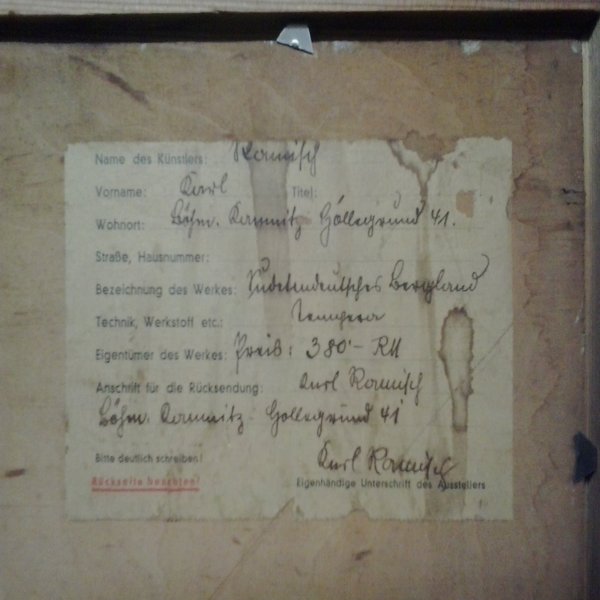 Name des Künstlers: Ramisch
Vorname: Karl Titel:
Wohnort: Böhm. Kamnitz Höllegrund 41.
Straße, Hausnummer:
Bezeichnung des Werkes: Sudetendeutsches Bergland
Technik, Werkstoff etc.: Tempera
Eigentümer des Werkes: Preis: 380.- RM
Anschrift für die Rücksendung: Karl Ramisch
Böhm. Kamnitz Höllegrund 41
Bitte deutlich schreiben! Karl Ramisch
Rückseite beachten! Eigenhändige Unterschrift des Ausstellers